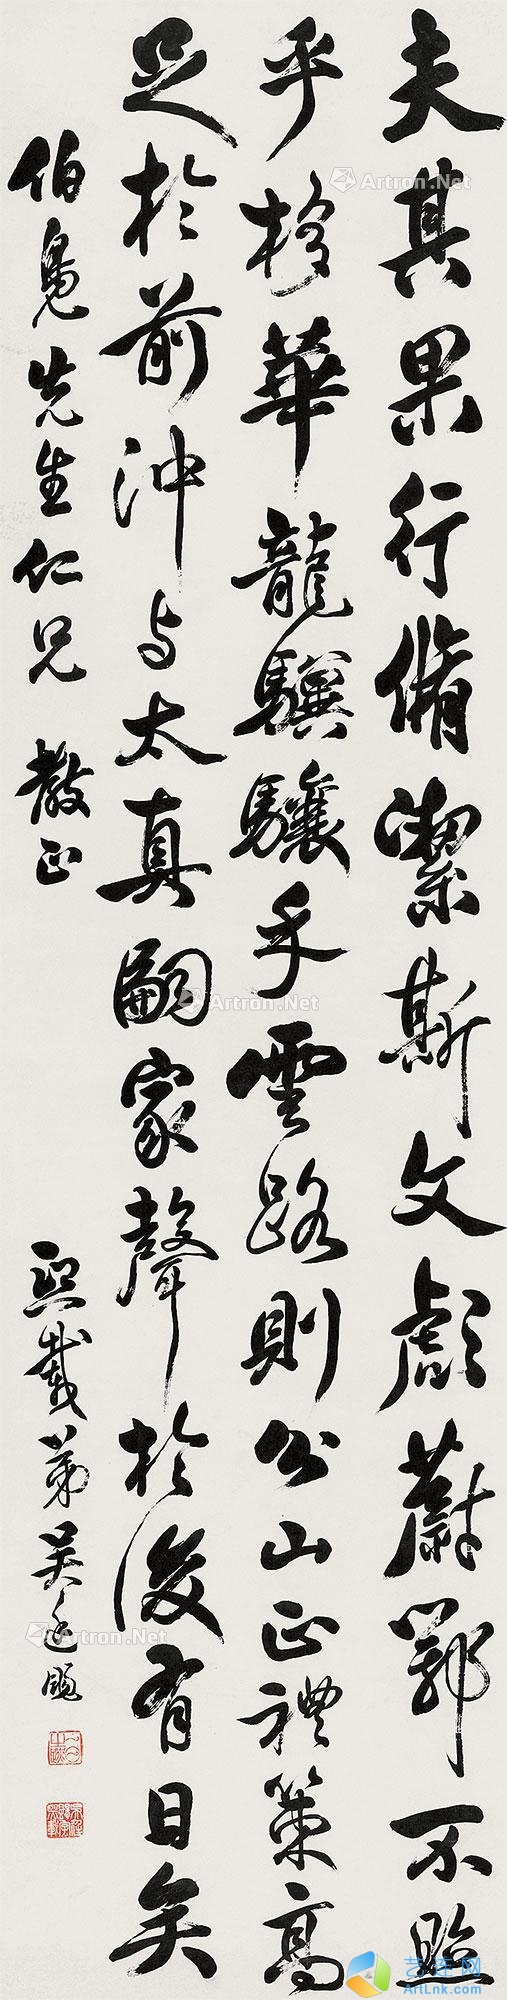 夫其果行脩潔斯文彪蔚鄂不照
乎栘華龍驥驤乎雲路則公山正禮策高
足於前沖与太真嗣家聲於後有日矣
伯鳧先生仁兄 教正 熙載弟吳廷颺
Artron.Net
Artron.Net
Artron.Net
艺连网
ArtLnk.com